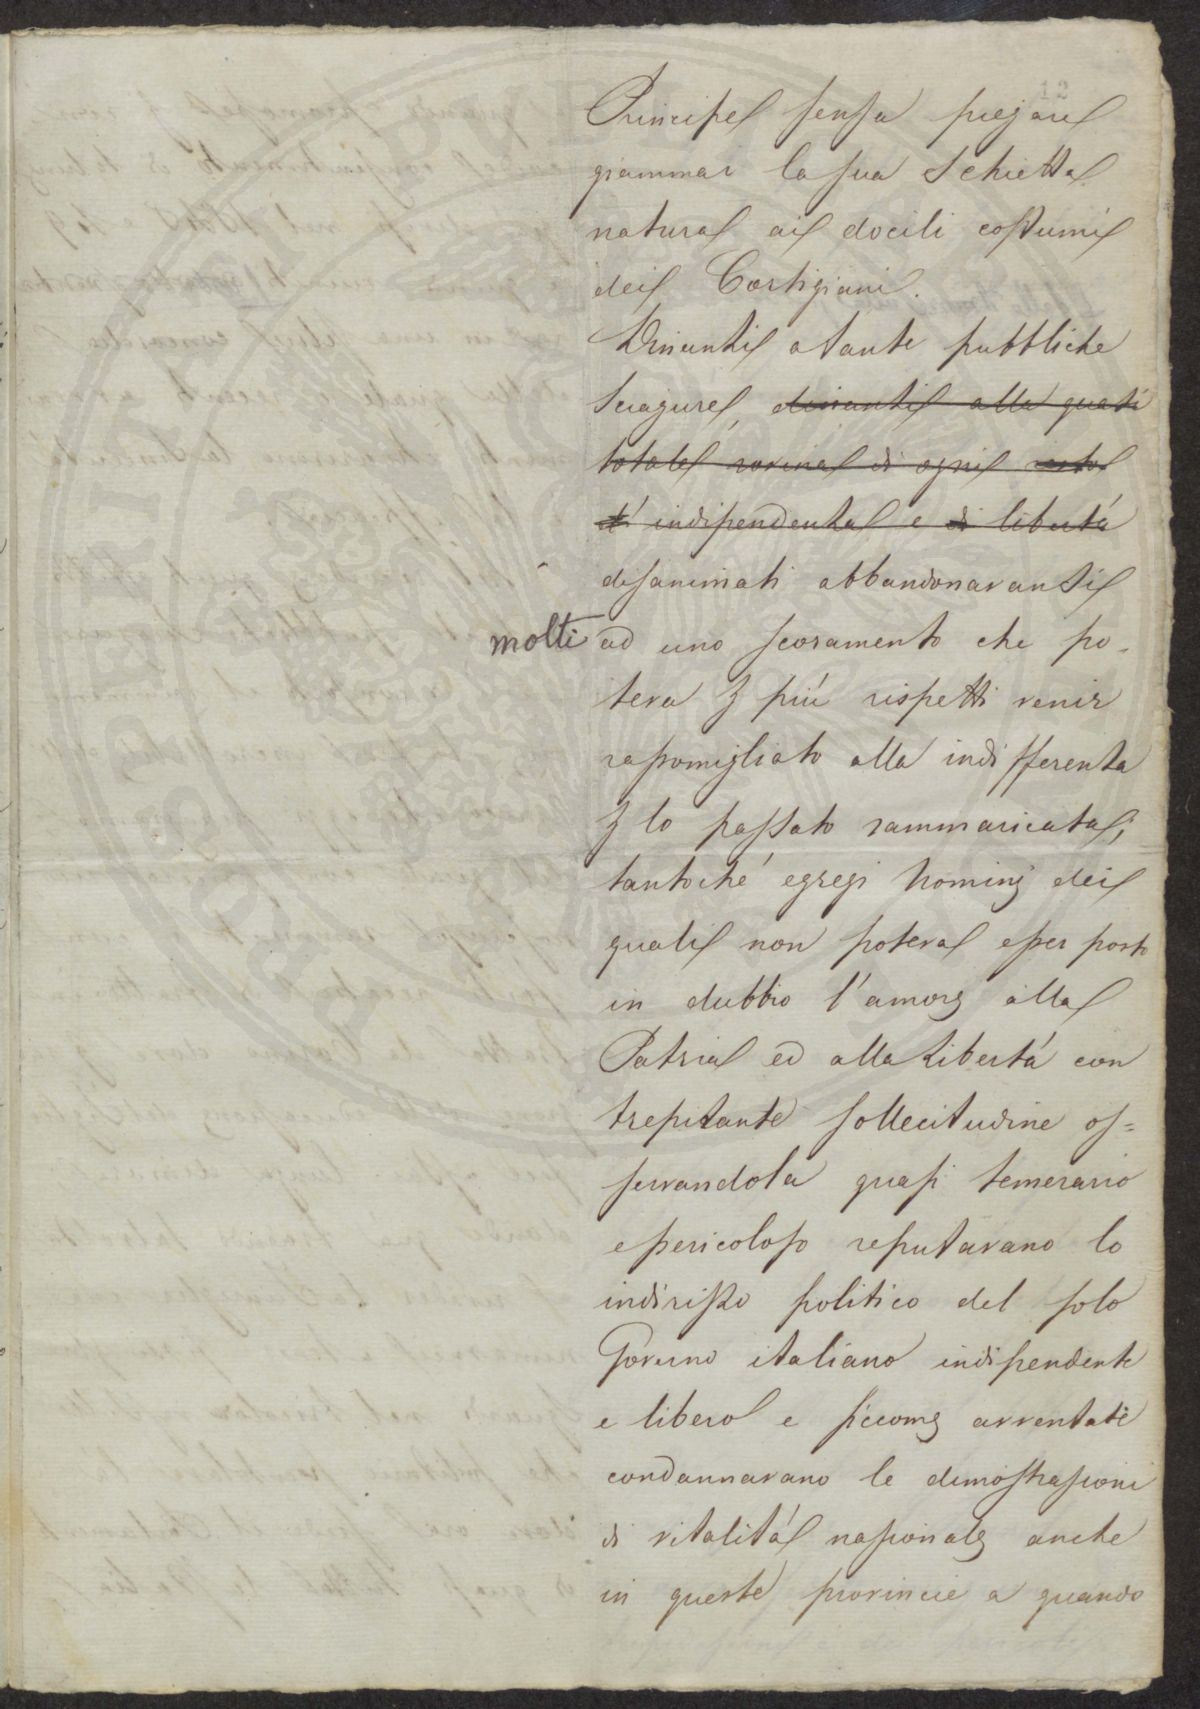 12
Principe senza piegare
giammai la sua schietta
natura ai docili costumi
dei Cortigiani.
Dinanti a tante pubbliche
sciagure, dinanti alla quasi
totale rovina di ogni resto
d' indipendenta e di libertá
disanimati abbandonavansi
molti ad uno scoramento che po-
teva per piú rispetti venir
rassomigliato alla indifferenta
per lo passato rammaricata,
tantoché egregi homini dei
quali non poteva esser posto
in dubbio l'amore alla
Patria ed alla Libertá con
trepitante sollecitudine os=
servandola quasi temerario
e pericoloso reputavano lo
indirizzo politico del solo
Governo italiano indipendente
e libero e siccome avventate
condannavano le dimostrazioni
di vitalitá nazionale anche
in queste provincie a quando